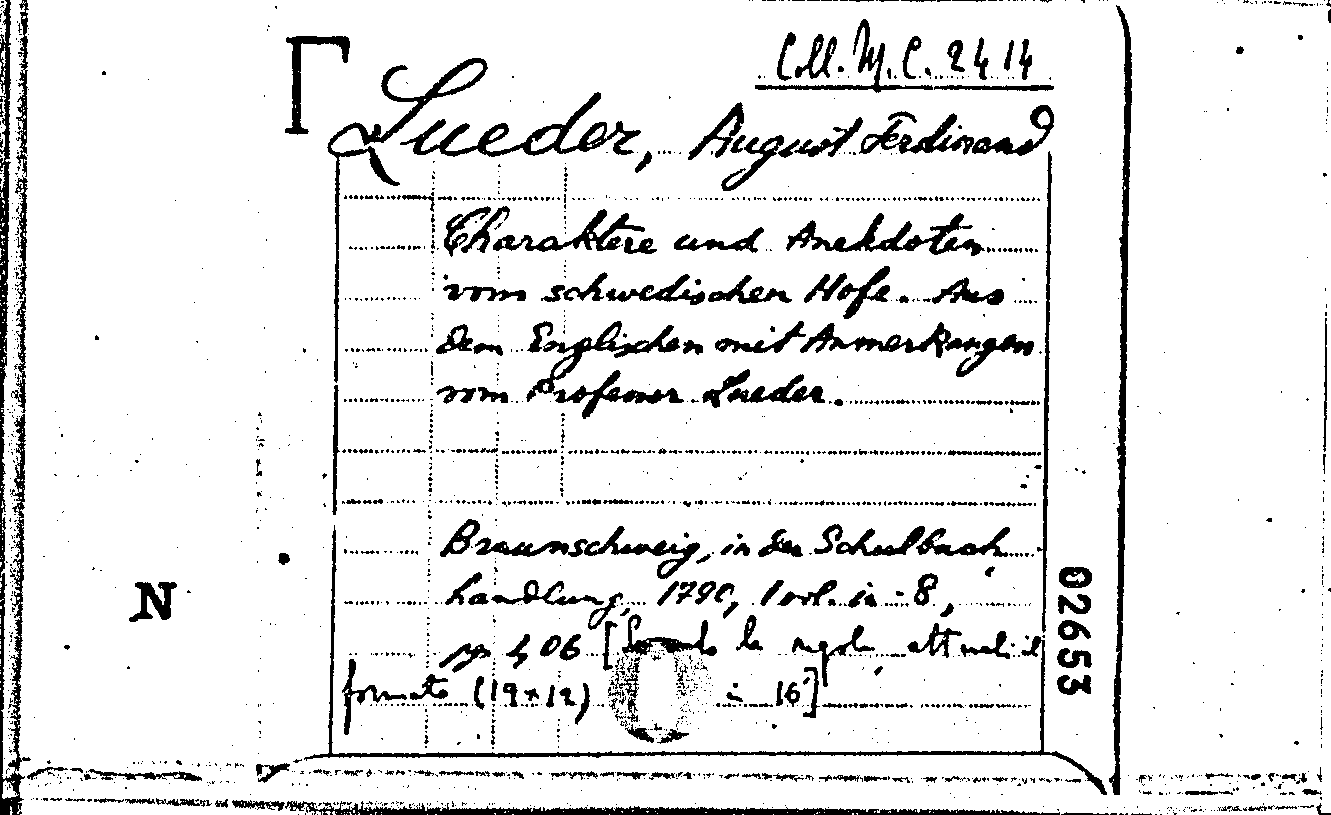 Coll. M. C. 2414
Lueder, August Ferdinand
Charaktere und Anekdoten
vom schwedischen Hofe. Aus
dem Englischen mit Anmerkungen
vom Professor Lueder.
Braunschweig, in der Schulbuch,
handlung, 1790, 1 vol. in-8,
pp 406 [Secondo le regole attuali il
formato (19x12) in 16°]
N
02653